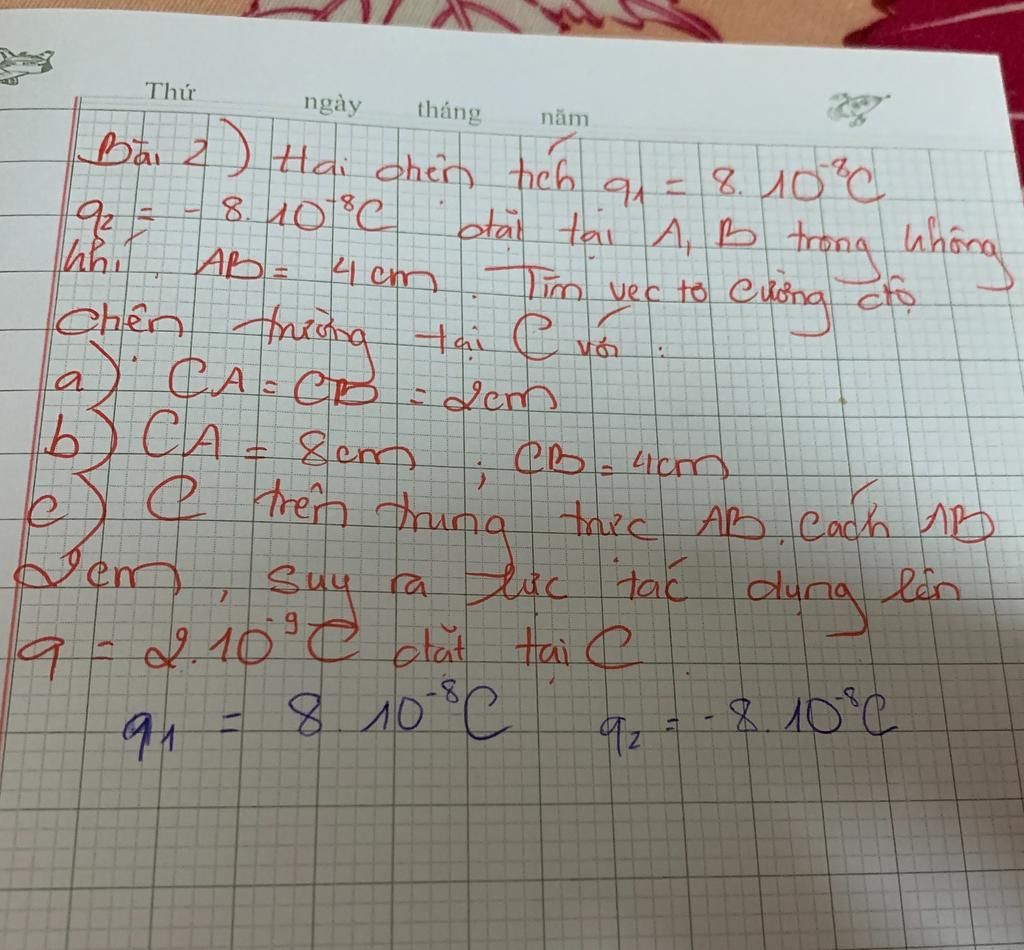 Thứ ngày tháng năm
Bài 2) Hai điện tích q₁ = 8.10⁻⁸C
q₂ = - 8.10⁻⁸C đặt tại A, B trong không
khí. AB = 4cm. Tìm vec tơ cường độ
điện trường tại C với :
a) CA = CB = 2cm
b) CA = 8cm ; CB = 4cm
c) C trên trung trực AB, cách AB
2cm, suy ra lực tác dụng lên
q = 2.10⁻⁹C đặt tại C
q₁ = 8 10⁻⁸C q₂ = -8.10⁻⁸C